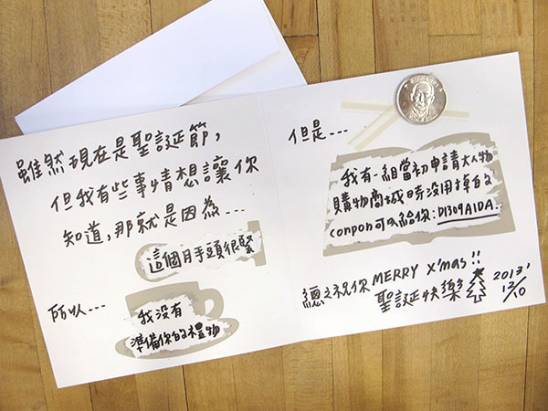 雖然現在是聖誕節,
但我有些事情想讓你
知道,那就是因為...
這個月手頭很緊
所以...
我沒有
準備你的禮物
但是...
我有一組當初申請大人物
購物商城時沒用掉的
conpon可以給你:D1309AIDA.
總之祝你MERRY X'mas!!
聖誕快樂
2013'
12/10